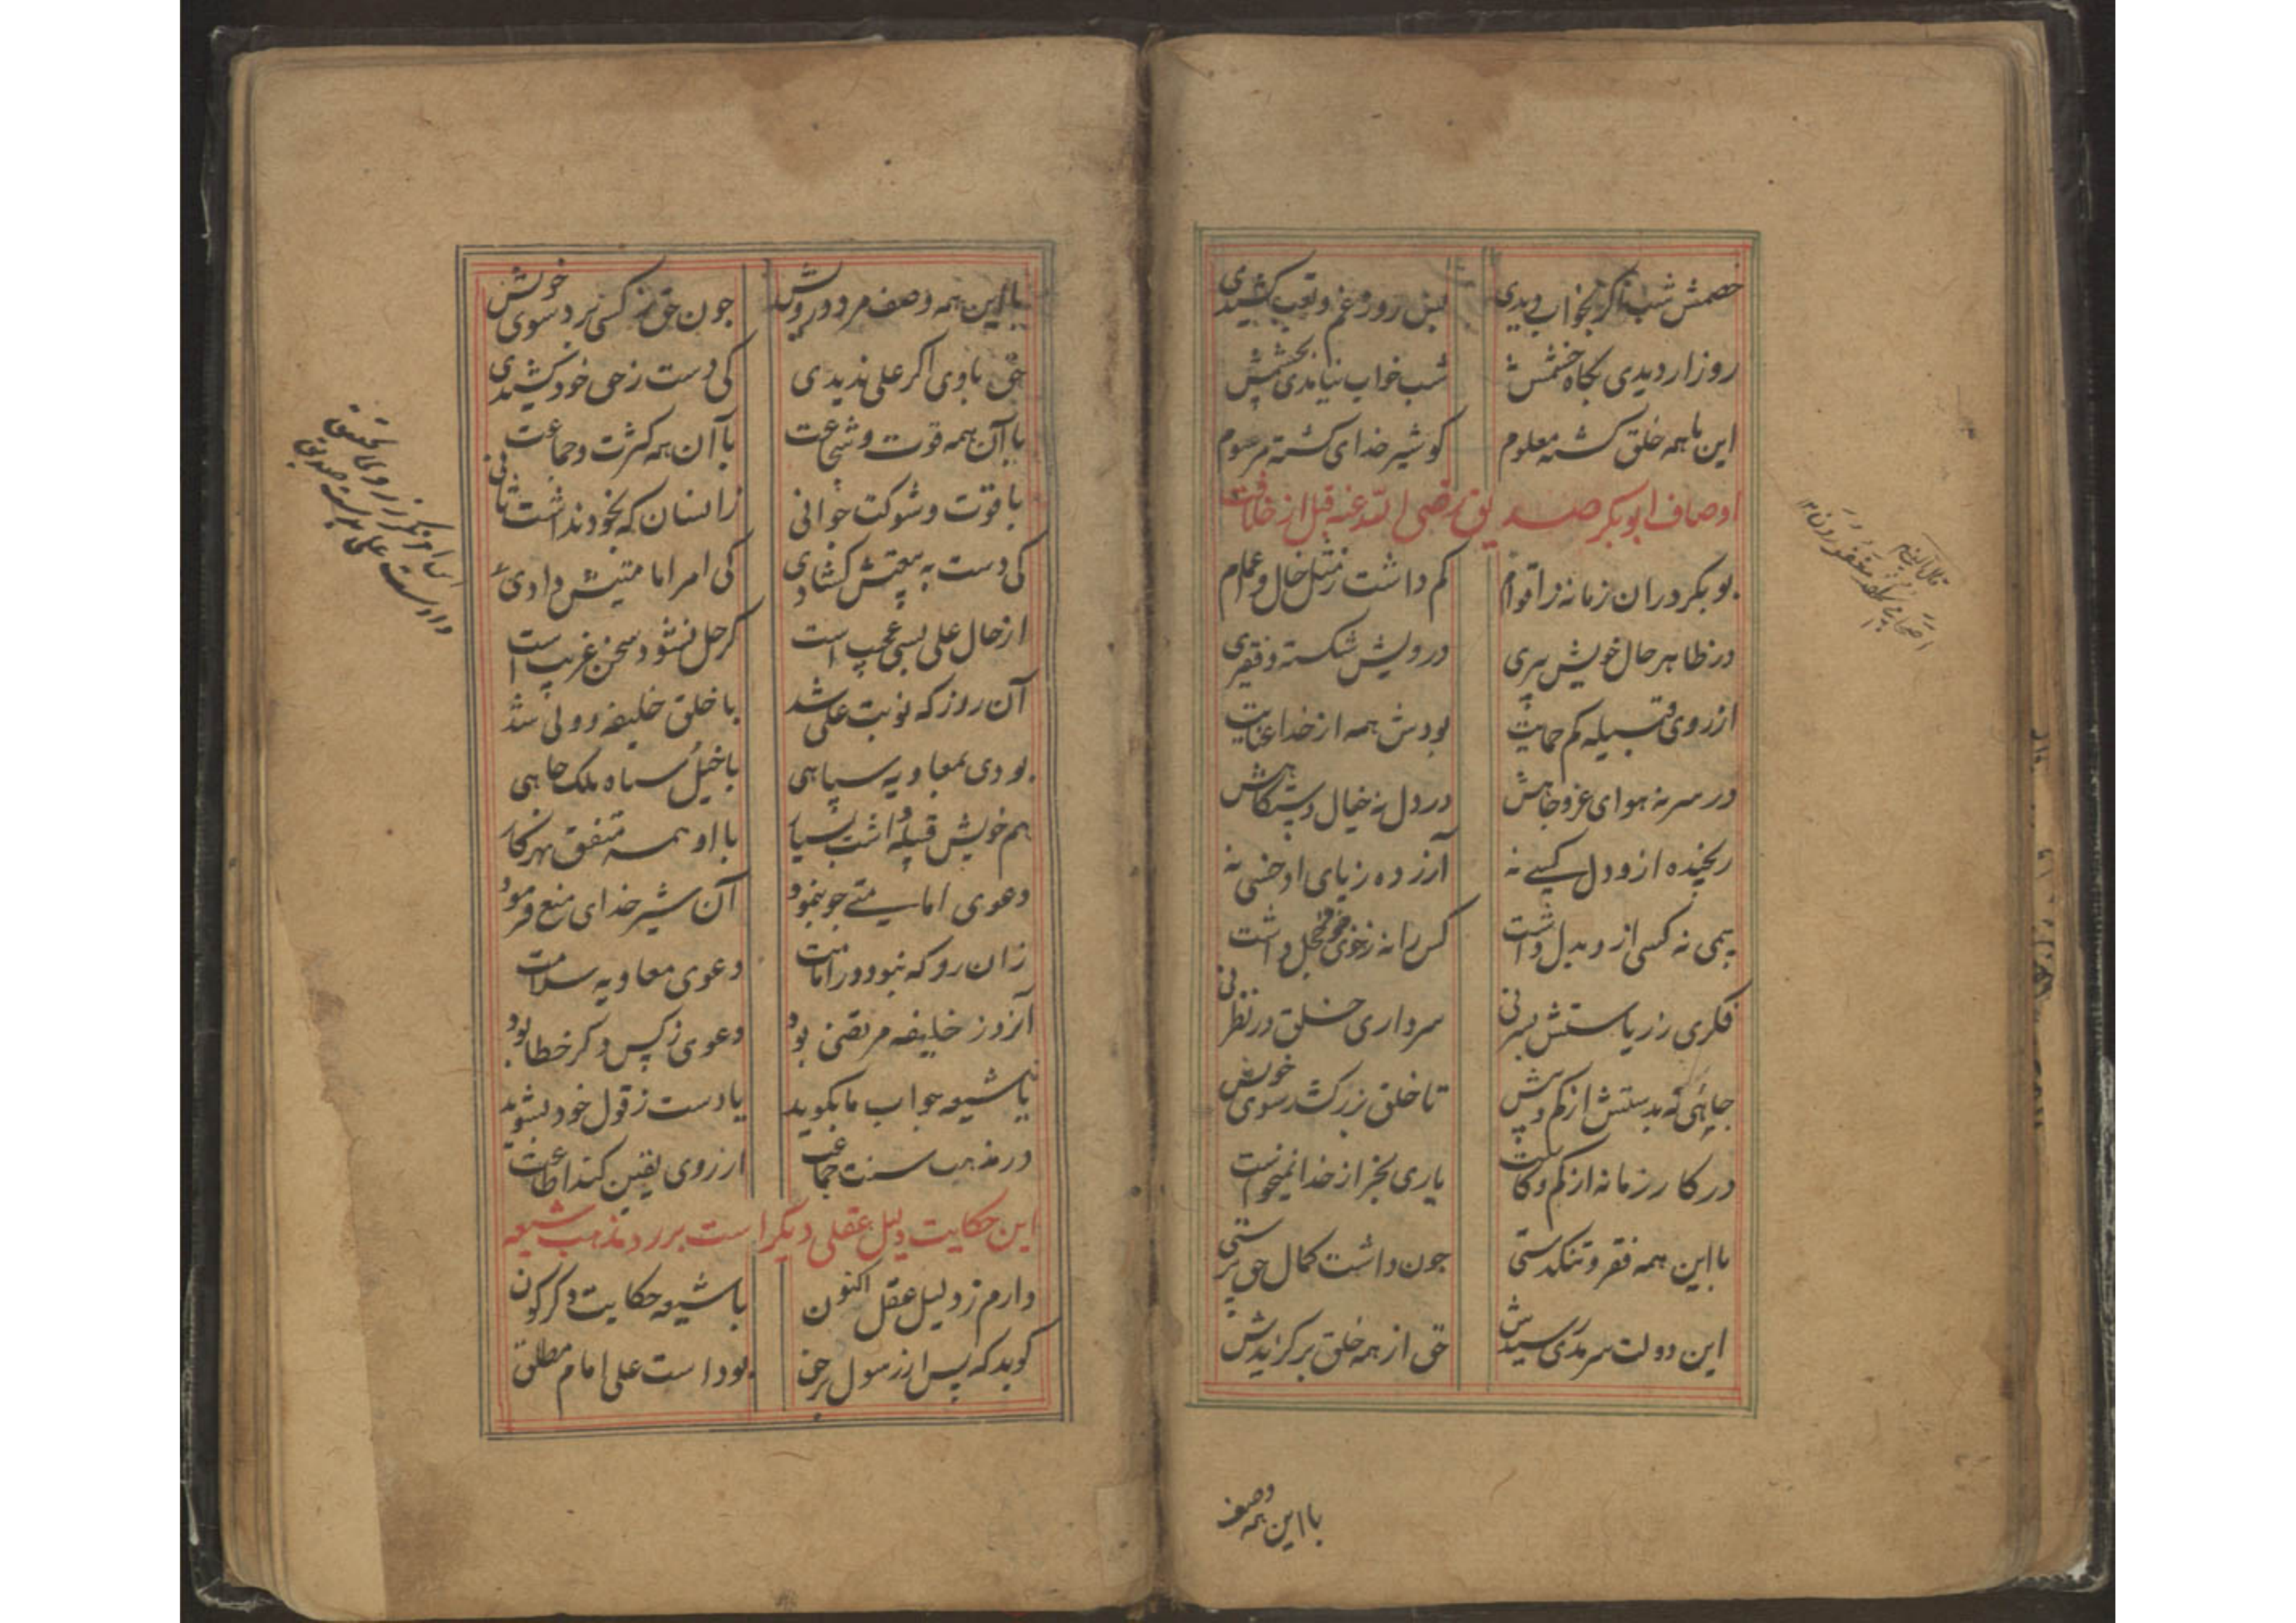 خصمش شب اگر بخواب دیدی بس روز و غم و تعب کشیدی
روز ار دیدی نگاه خشمش شب خواب نیامدی بچشمش
این با همه خلق گشته معلوم کو شیر خدای گشته مرسوم
اوصاف ابوبکر صدیق رضی الله عنه قبل از خلافت
بوبکر در ان زمانه ز اقوام کم داشت ز مثل خال و اعمام
در ظاهر حال خویش پیری درویش شکسته و فقیری
از روی قبیله کم حمایت بودش همه از خدا عنایت
در سر نه هوای عز و جاهش در دل نه خیال دستگاهش
رنجیده ازو دل کسی نه آزرده ز پای او خسی نه
بیمی نه کسی ازو بدل داشت کس را نه ز خوی خود خجل داشت
فکری ز ریاستش بسر نی سرداری خلق در نظر نی
جاهی نه بدستش از کم و بیش تا خلق بزر کشد سوی خویش
در کار زمانه از کم و کاست یاری بجز از خدا نمیخواست
با این همه فقر و تنکدستی چون داشت کمال حق پرستی
این دولت سرمدی رسیدش حق از همه خلق برگزیدش
با این همه وصف
با این همه وصف مرد درویش چون حق ز کسی نبرد سوی خویش
حق با وی اگر علی ندیدی کی دست ز حق خود کشیدی
با آن همه قوت و شجاعت با آن همه کثرت و جماعت
با قوت و شوکت جوانی زانسان که بخود نداشت ثانی
کی دست به بیعتش کشادی کی امر امامتیش دادی
از حال علی بسی عجیب است گر حل نشود سخن غریب است
آن روز که نوبت علی شد با خلق خلیفه و ولی شد
بودی بمعاویه سپاهی با خیل و سپاه ملک جاهی
هم خویش قبیله داشت بسیار با او همه متفق بهر کار
دعوی امامتی چو بنمود آن شیر خدای منع فرمود
زان رو که نبود در امامت دعوی معاویه سلامت
آنروز خلیفه مرتضی بود دعوی ز کس دگر خطا بود
یا شیعه جواب ما بگوید یا دست ز قول خود بشوید
در مذهب سنت جماعت از روی یقین کند اطاعت
این حکایت دلیل عقلی دیگر است بر رد مذهب شیعه
دارم ز دلیل عقل اکنون با شیعه حکایت دگرگون
گوید که پس از رسول بر حق بود است علی امام مطلق